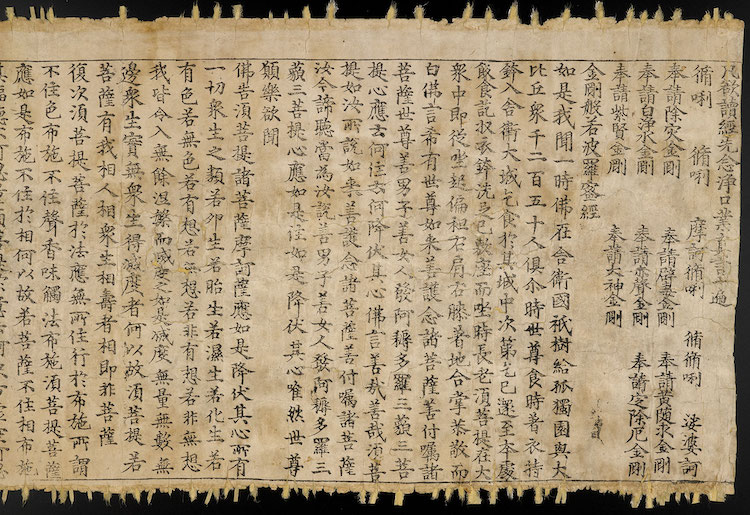 凡欲讀經先念淨口業真言一遍
脩唎 脩唎 摩訶脩唎 脩脩唎 娑婆訶
奉請除灾金剛 奉請辟毒金剛 奉請黃隨求金剛
奉請白淨水金剛 奉請赤聲金剛 奉請定除厄金剛
奉請紫賢金剛 奉請大神金剛
金剛般若波羅蜜經
如是我聞一時佛在舍衛國祇樹給孤獨園與大
比丘衆千二百五十人俱尒時世尊食時著衣持
鉢入舍衛大城乞食於其城中次第乞已還至本處
飯食訖收衣鉢洗足已敷座而坐時長老湏菩提在大
衆中即從坐起偏袒右肩右膝著地合掌恭敬而
白佛言希有世尊如来善護念諸菩薩善付囑諸
菩薩世尊善男子善女人發阿耨多羅三藐三菩
提心應云何住云何降伏其心佛言善哉善哉湏菩
提如汝所說如来善護念諸菩薩善付囑諸菩薩
汝今諦聽當為汝說善男子善女人發阿耨多羅三
藐三菩提心應如是住如是降伏其心唯然世尊
願樂欲聞
佛告湏菩提諸菩薩摩訶薩應如是降伏其心所有
一切衆生之類若夘生若胎生若濕生若化生若
有色若無色若有想若無想若非有想若非無想
我皆令入無餘涅槃而滅度之如是滅度無量無數無
邊衆生實無衆生得滅度者何以故湏菩提若
菩薩有我相人相衆生相壽者相即非菩薩
復次湏菩提菩薩於法應無所住行於布施所謂
不住色布施不住聲香味觸法布施湏菩提菩薩
應如是布施不住於相何以故若菩薩不住相布施